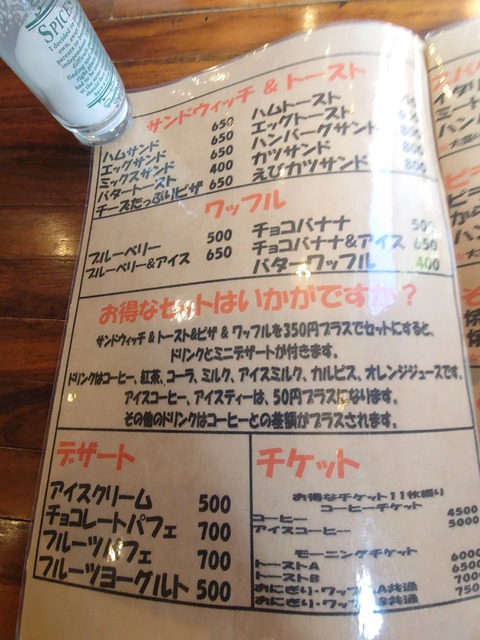 SPICE
サンドウィッチ & トースト
ハムサンド 650
エッグサンド 650
ミックスサンド 650
バタートースト 400
チーズたっぷりピザ 650
ハムトースト
エッグトースト
ハンバーグサンド 800
カツサンド 800
えびカツサンド 800
ワッフル
ブルーベリー 500
ブルーベリー&アイス 650
チョコバナナ 500
チョコバナナ&アイス 650
バターワッフル 400
お得なセットはいかがですか?
サンドウィッチ & トースト&ピザ & ワッフルを350円プラスでセットにすると、
ドリンクとミニデザートが付きます。
ドリンクはコーヒー、紅茶、コーラ、ミルク、アイスミルク、カルピス、オレンジジュースです。
アイスコーヒー、アイスティーは、50円プラスになります。
その他のドリンクはコーヒーとの差額がプラスされます。
デザート
アイスクリーム 500
チョコレートパフェ 700
フルーツパフェ 700
フルーツヨーグルト 500
チケット
お得なチケット11枚綴り
コーヒーチケット
コーヒー 4500
アイスコーヒー 5000
モーニングチケット
6000
トーストA 6500
トーストB 700
おにぎり・ワッフルA共通 750
おにぎり・ワッフルB共通